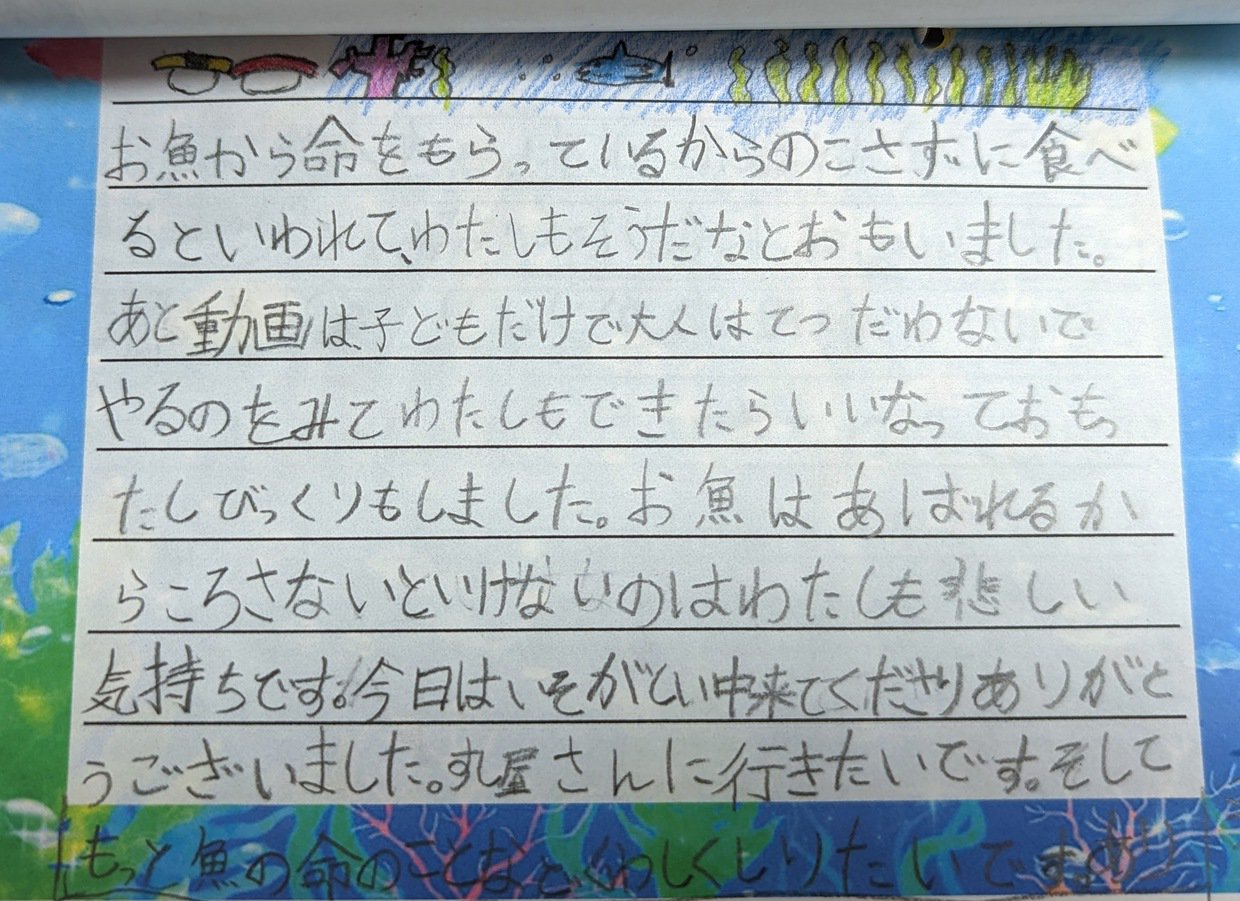 お魚から命をもらっているからのこさずに食べ
るといわれて、わたしもそうだなとおもいました。
あと動画は子どもだけで大人はてつだわないで
やるのをみてわたしもできたらいいなっておもっ
たしびっくりもしました。お魚はあばれるか
らころさないといけないのはわたしも悲しい
気持ちです。今日はいそがしい中来てくださりありがと
うございました。丸屋さんに行きたいです。そして
もっと魚の命のことなどくわしくしりたいです。